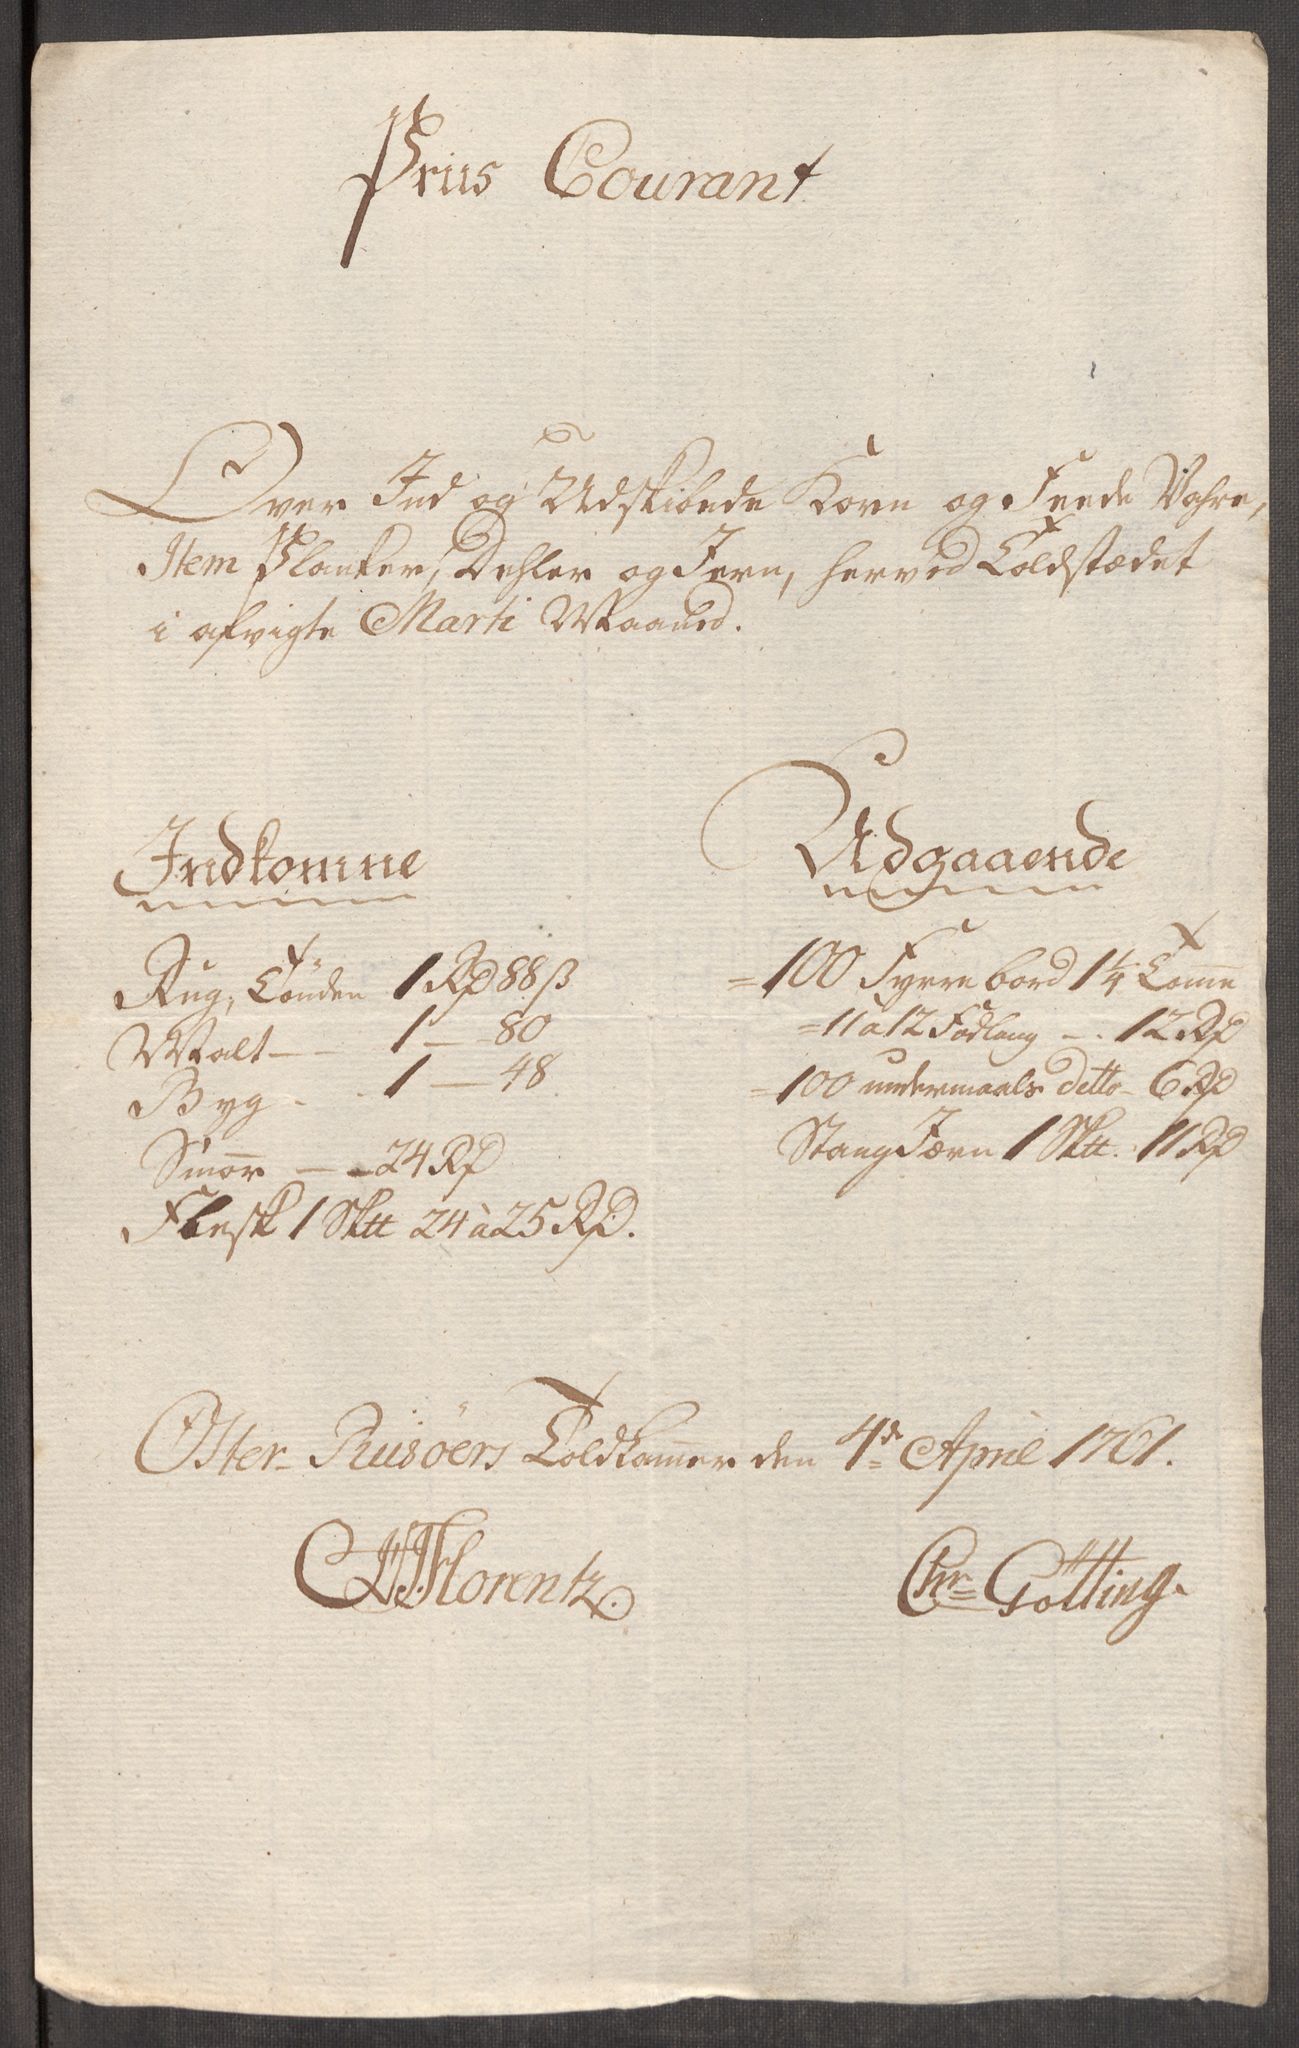 Priis Courant
Over Ind og Udskibede Korn og Feede Vahre,
Item Planker, Dehler og Jern, herved Toldstædet
i afvigte Marti Maaned.
Indkomne
Rug, Tönden 1 Rd 88 ß
Malt — 1 — 80
Byg . . 1 — 48
Smör — 24 Rd
Flesk 1 Sktt 24 à 25 Rd.
Udgaaende
= 100 Fyrre bord 1¼ Tomme
= 11 a 12 Fodlang — . 12 Rd
= 100 undermaals detto - 6 Rd
Stang Jærn 1 Sktt . 11 Rd
Öster-Riisöers Toldkammer den 4de April 1761.
Florentz.
Chr= Götting.